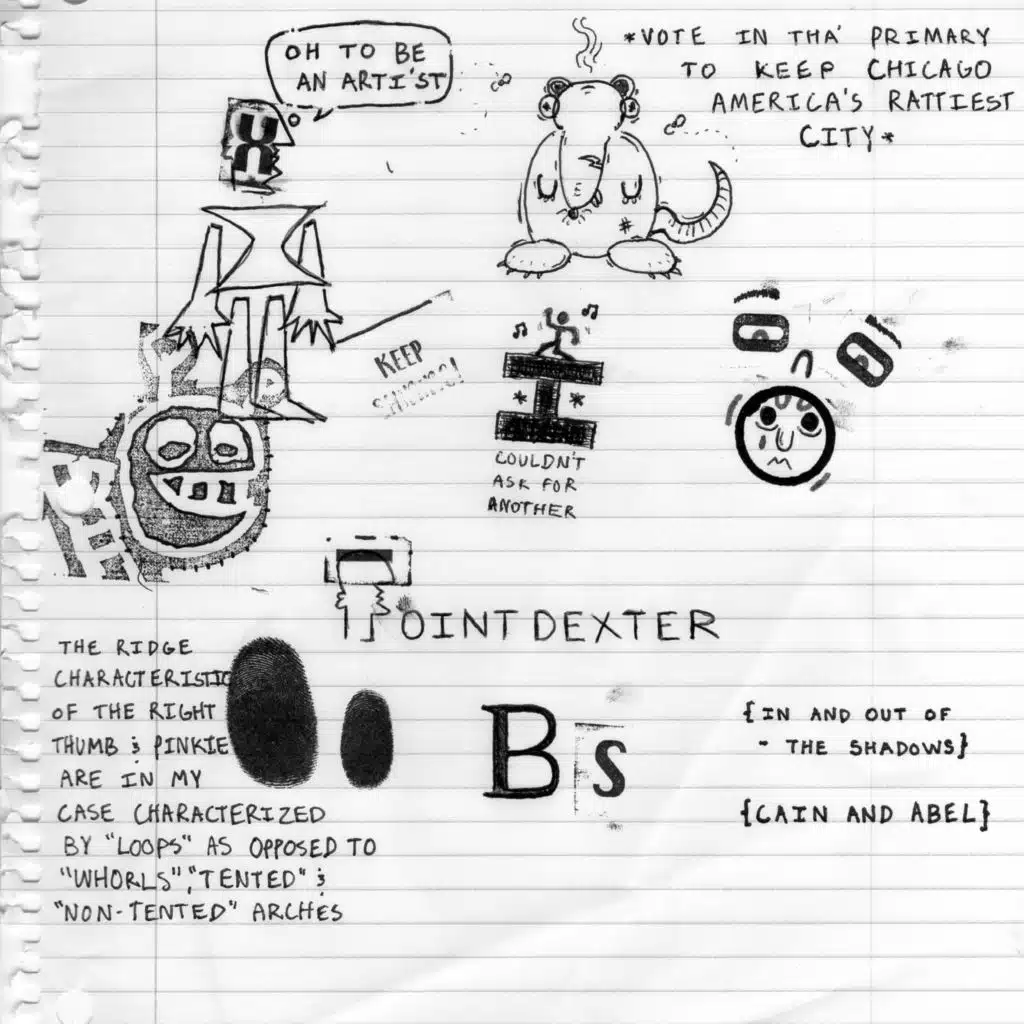 OH TO BE
AN ARTI'ST
*VOTE IN THA' PRIMARY
TO KEEP CHICAGO
AMERICA'S RATTIEST
CITY*
KEEP
I
COULDN'T
ASK FOR
ANOTHER
OINTDEXTER
THE RIDGE
CHARACTERISTIC
OF THE RIGHT
THUMB & PINKIE
ARE IN MY
CASE CHARACTERIZED
BY "LOOPS" AS OPPOSED TO
"WHORLS", "TENTED" &
"NON-TENTED" ARCHES
Bs
{IN AND OUT OF
- THE SHADOWS}
{CAIN AND ABEL}